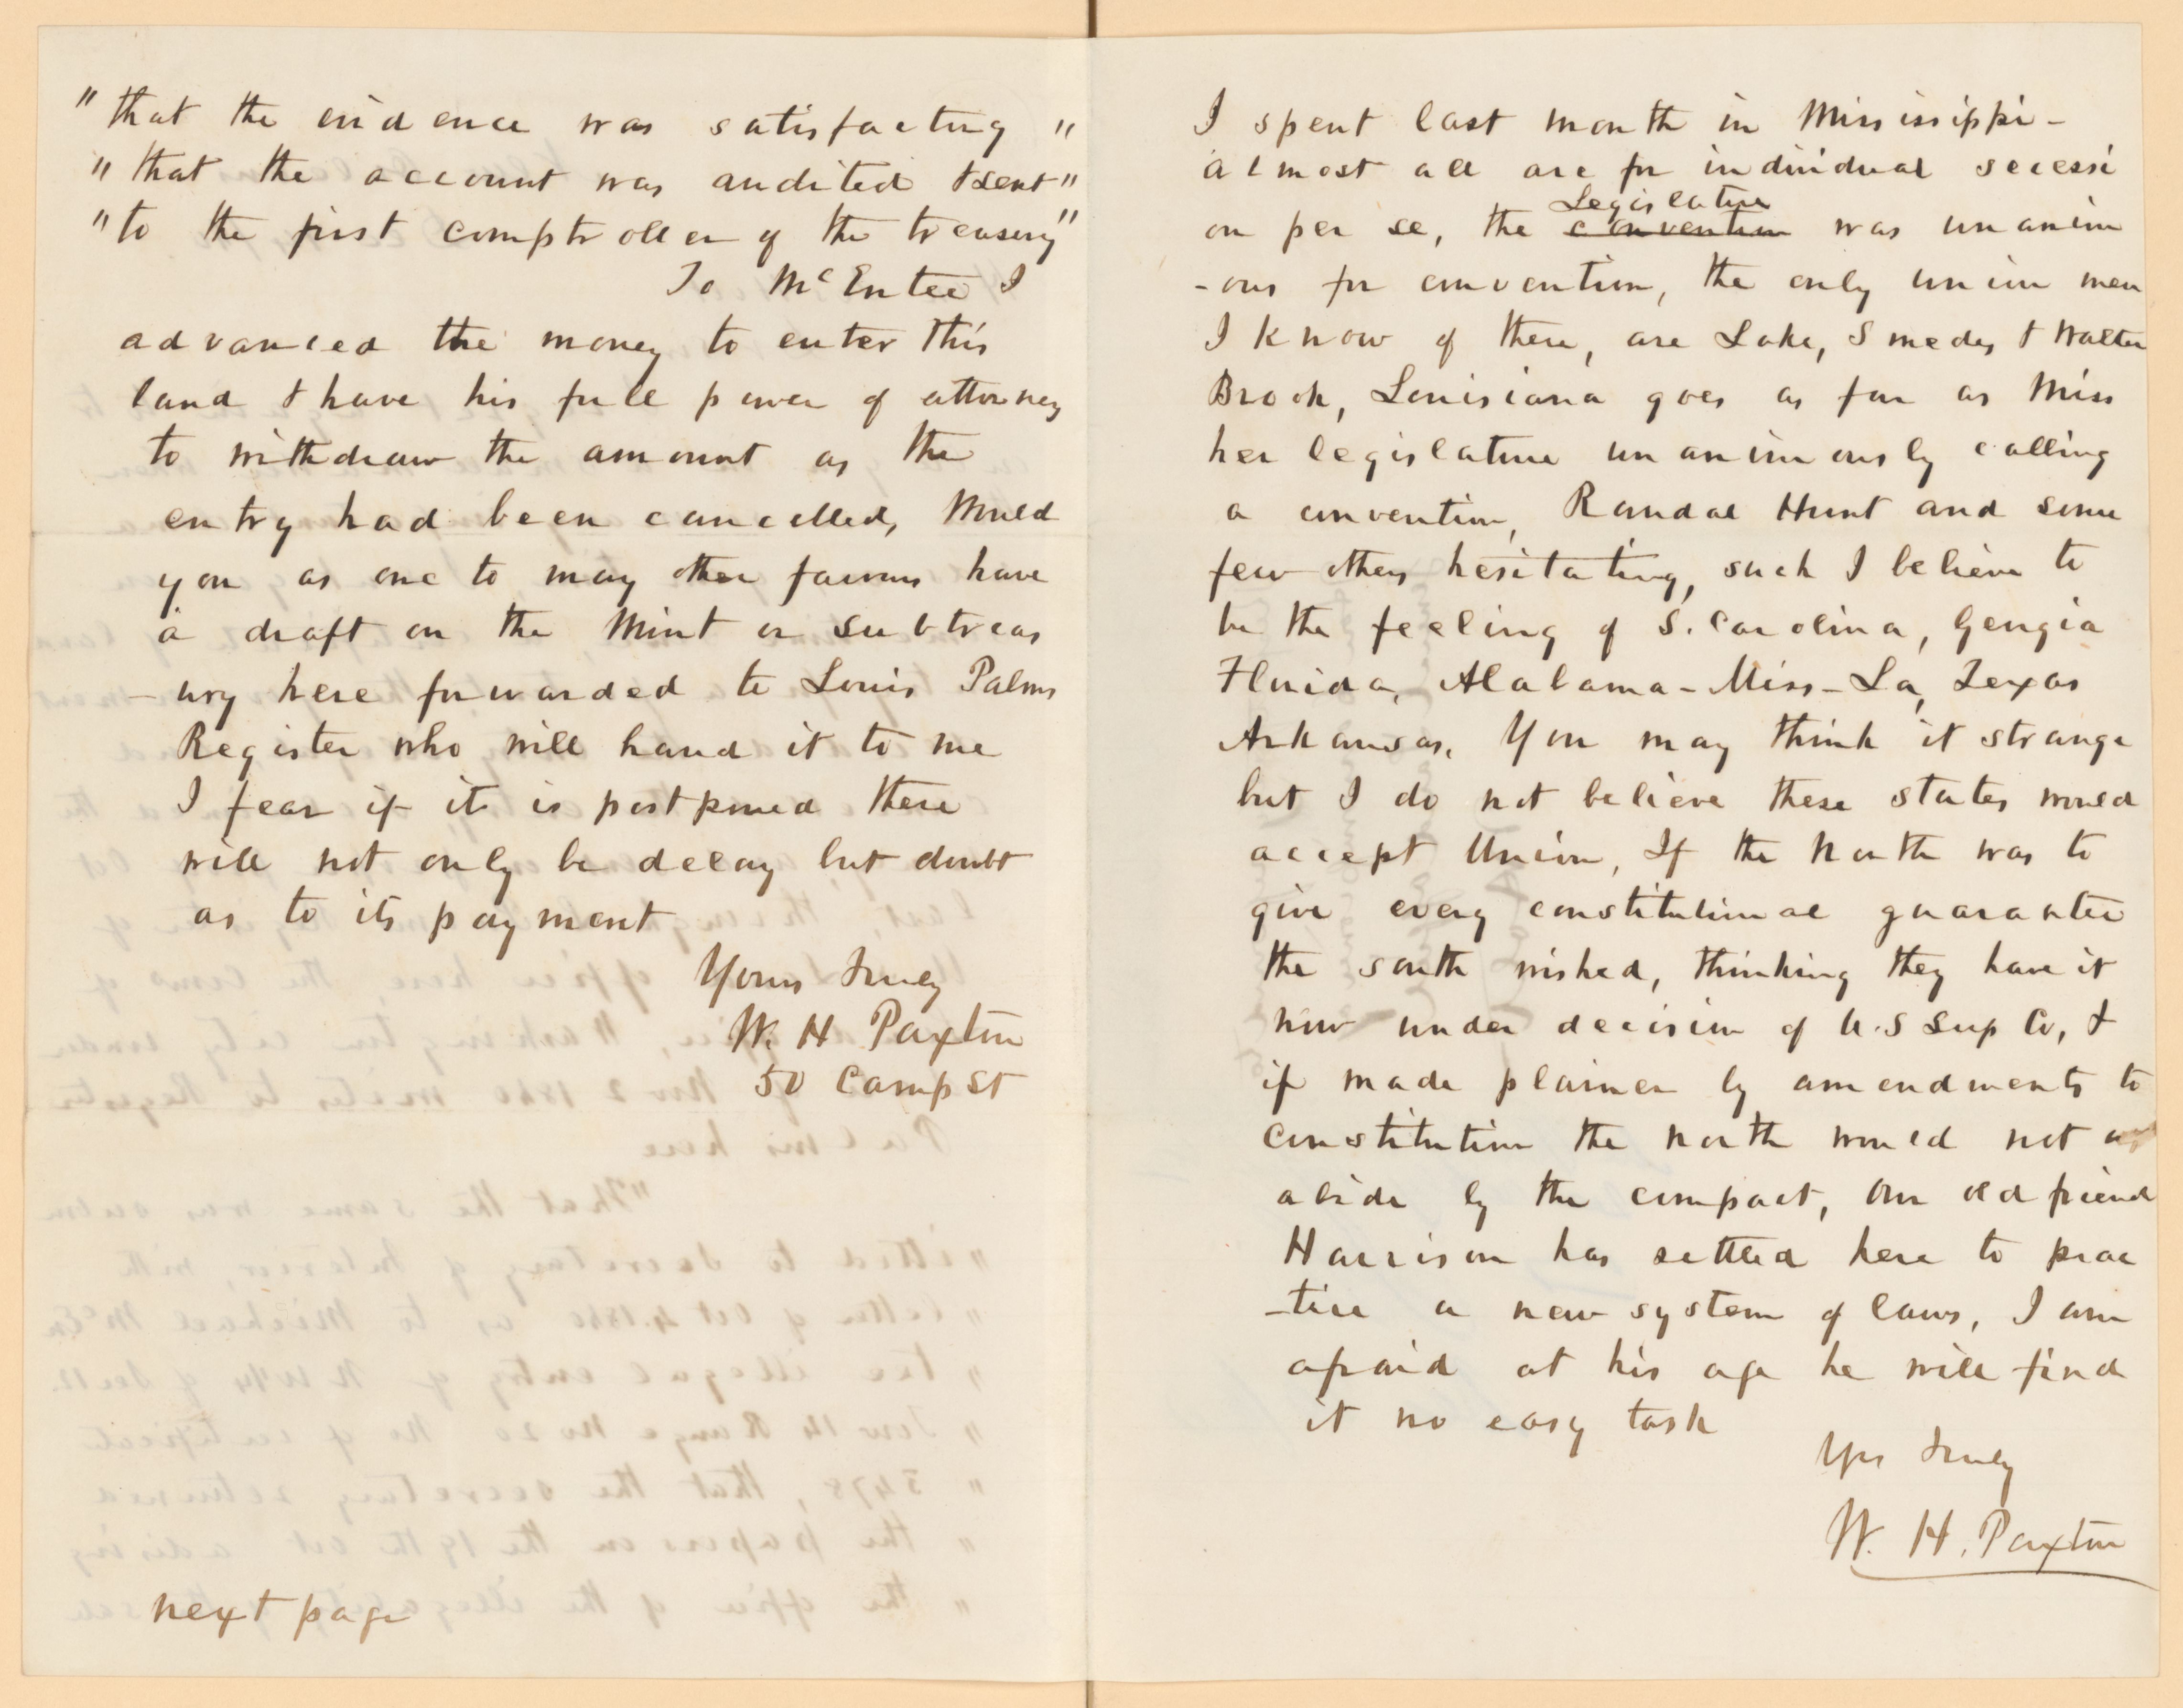 "that the evidence was satisfactory"
"that the account was audited & sent"
"to the first comptroller of the treasury"
To McEntee I
advanced the money to enter this
land & have his full power of attorney
to withdraw the amount as the
entry had been cancelled, Would
you as one to may other favours have
a draft on the Mint or subtreas
-ury here forwarded to Louis Palms
Register who will hand it to me
I fear if it is postponed there
will not only be delay but doubt
as to its payment
Yours truly
W. H Paxton
50 Camp St
next page
I spent last month in Mississippi-
almost all are for individual secessi
on per se, the convention Legislature was unanim
-ous for convention, the only union men
I know of there, are Lake, Smedes & Walter
Brook, Louisiana goes as far as Miss
her legislature unanimously calling
a convention, Randal Hunt and some
few others hesitating, such I believe to
be the feeling of S. Carolina, Georgia
Florida, Alabama-Miss-La, Texas
Arkansas. You may think it strange
but I do not believe these states would
accept Union, If the North was to
give every constitutional guarantee
the south wished, thinking they have it
now under decision of U.S Sup Co, &
if made plainer by amendments to
constitution the north would not
abide by the compact, Our old friend
Harrison has settled here to prac
-tice a new system of laws, I am
afraid at his age he will find
it no easy task
Yrs truly
W. H. Paxton